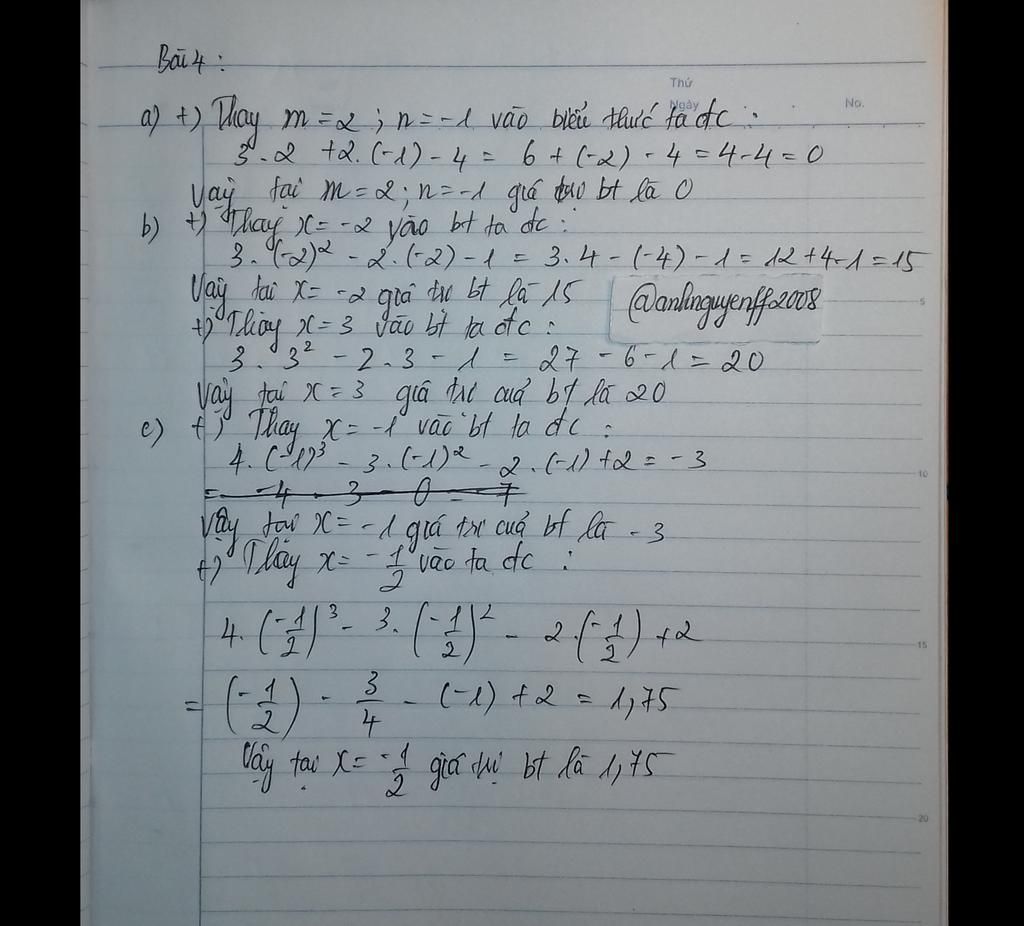 Bài 4 :
Thứ
Ngày
No.
a) +) Thay m = 2 ; n = -1 vào biểu thức ta đc :
3 . 2 + 2 . (-1) - 4 = 6 + (-2) - 4 = 4 - 4 = 0
Vậy tại m = 2 ; n = -1 giá trị bt là 0
b) +) Thay x = -2 vào bt ta đc :
3 . (-2)² - 2 . (-2) - 1 = 3 . 4 - (-4) - 1 = 12 + 4 - 1 = 15
Vậy tại x = -2 giá trị bt là 15
@anhnguyenff2008
5
+) Thay x = 3 vào bt ta đc :
3 . 3² - 2 . 3 - 1 = 27 - 6 - 1 = 20
Vậy tại x = 3 giá trị của bt là 20
c) +) Thay x = -1 vào bt ta đc :
4 . (-1)³ - 3 . (-1)² - 2 . (-1) + 2 = -3
10
= -4 - 3 - 0 = 7
Vậy tại x = -1 giá trị của bt là -3
+) Thay x = -1/2 vào ta đc :
4 . (-1/2)³ - 3 . (-1/2)² - 2 . (-1/2) + 2
15
= (-1/2) - 3/4 - (-1) + 2 = 1,75
Vậy tại x = -1/2 giá trị bt là 1,75
20